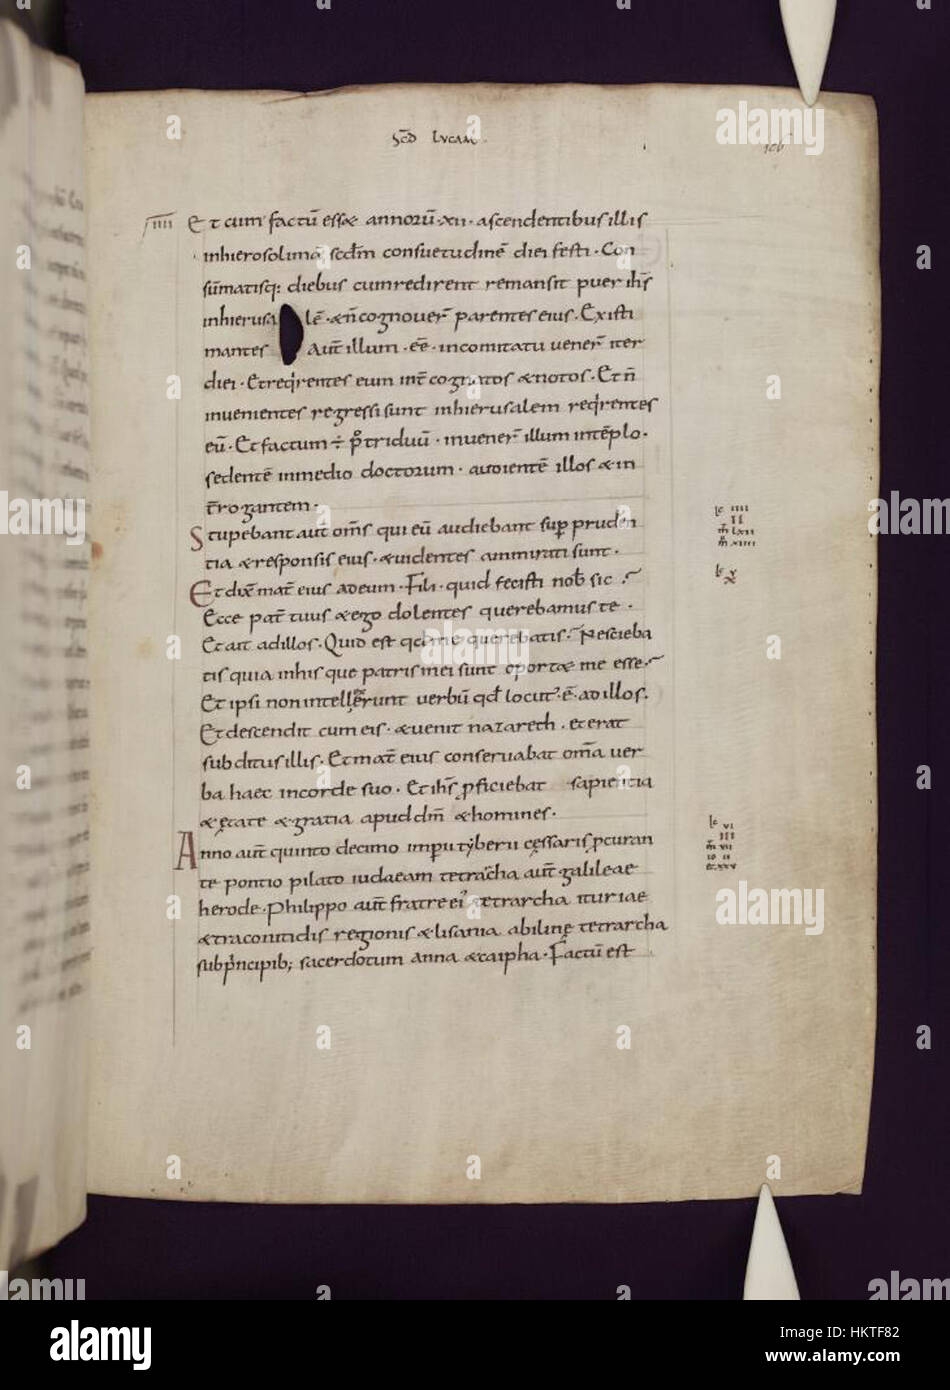 Scd LVCAM
106
IIII Et cum factū essæ annorū·xii· ascendentibus illis
inhierosolimā scdm consuetudinē diei festi· Con
sūmatisq; diebus cumredirent remansit puer ihs̄
inhierusa lē· &n̄ cognouer̄ parentes eius· Existi
mantes Aut̄ illum· eē· incomitatu uener̄ iter
diei· Etreqrentes eum int̄ cognatos &notos· Et n̄
inuenientes regressi sunt inhierusalem reqrentes
eū· Et factum ÷ p̊ triduū· inuener̄ illum intēplo·
sedentē inmedio doctorum· audientē illos & in
t̄rogantem·
Stupebant aut om̄s qui eū audiebant sup pruden
tia &responsis eius· &uidentes ammirati sunt·
Et dix̄ mat̄ eius adeum· Fili· quid fecisti nob̄ sic
Ecce pat̄ tuus &ego dolentes querebamus te·
Et ait adillos· Quid est qd me querebatis· Nescieba
tis quia inhis que patris mei sunt oportæ me esse·
Et ipsi non intellexerunt uerbū qd locut᾽· ē· ad illos·
Et descendit cum eis· &uenit nazareth· et erat
subditus illis· Et mat̄ eius conseruabat om̄a uer
ba haec incorde suo· Et ihs̄ pficiebat sapientia
& ętate &gratia apud dm̄ &homines·
Anno aut̄ quinto decimo imp̄ii tyberii cęssaris pcuran
te pontio pilato iudaeam tetracha aut̄ galileae
herode· Philippo aut̄ fratre ei᾽ tetrarcha ituriae
&traconitidis regionis &lisania abilinę tetrarcha
subp̄ncipib; sacerdotum anna &caipha· Factū est
lc IIII
II
m̄ LXII
m̄ XIIII
lc V
X
lc VI
III
m̄ VII
io II
et XXV
alamy stock photo
HKTF82
www.alamy.com